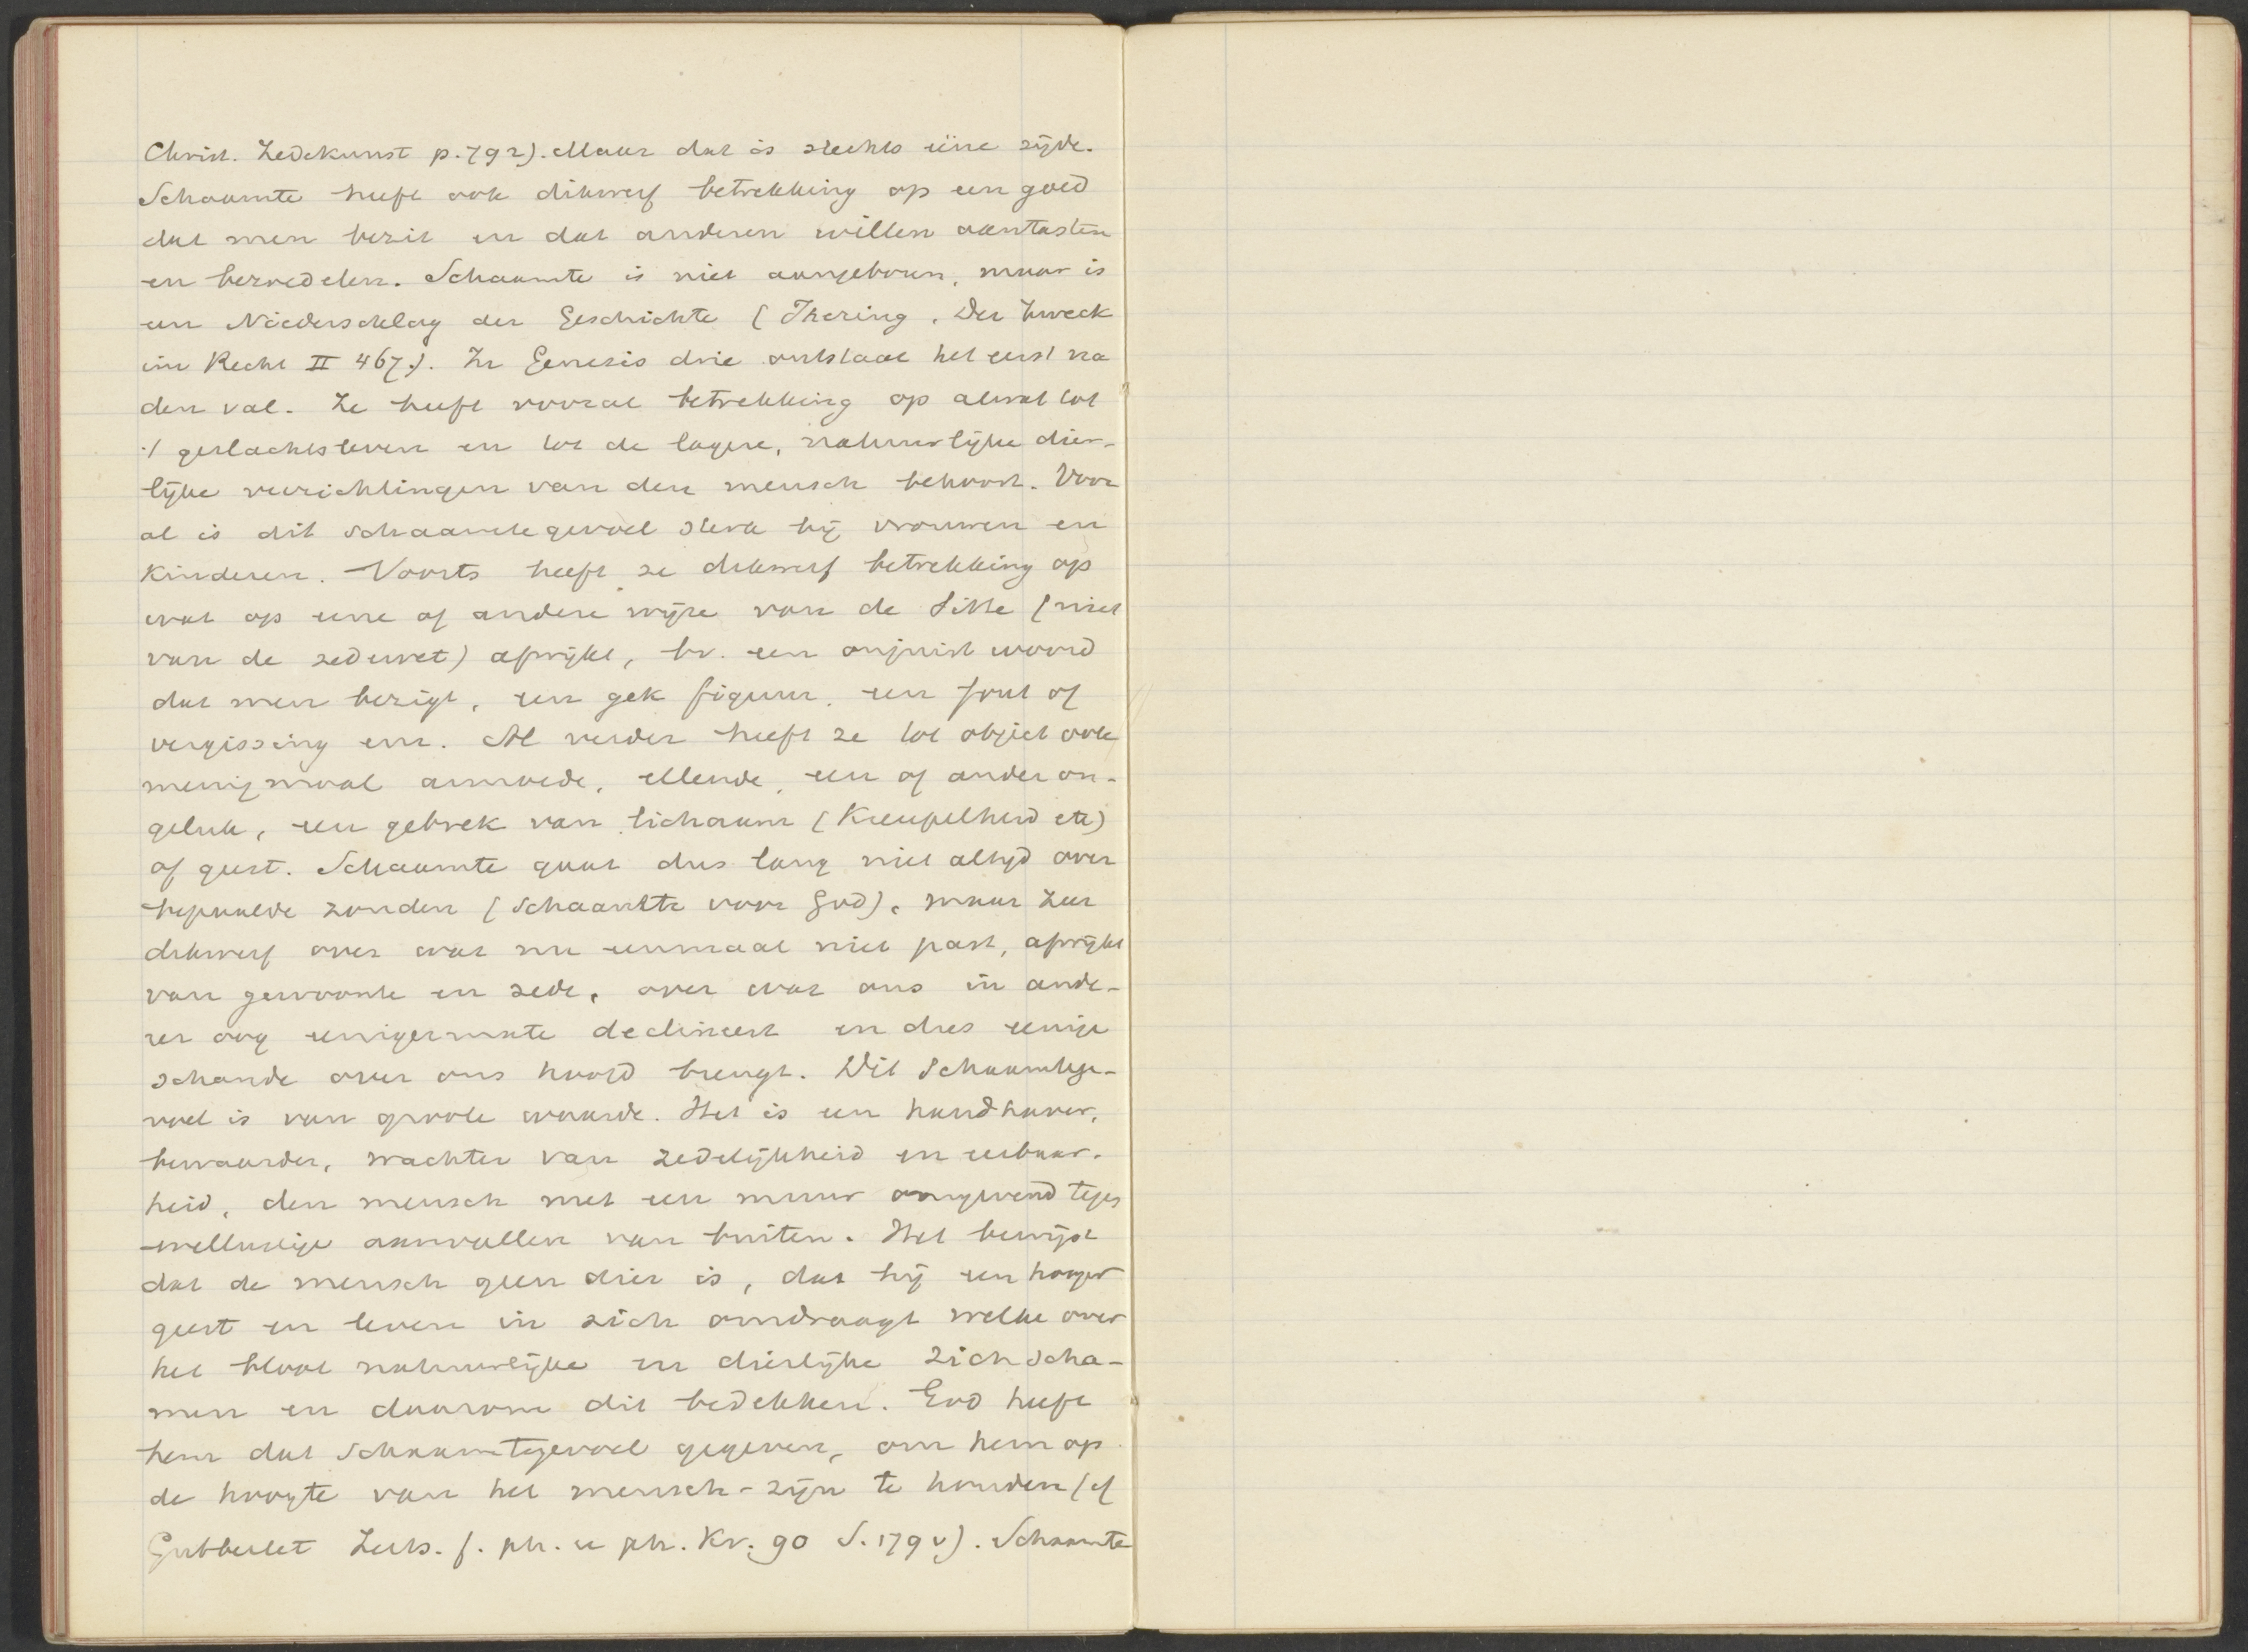 Christ. Zedekunst p. 792). Maar dat is slechts ééne zijde.
Schaamte heeft ook dikwerf betrekking op een goed
dat men bezit en dat anderen willen aantasten
en bezoedelen. Schaamte is niet aangeboren, maar is
een Niederschlag der Geschichte (Ihering, Der Zweck
im Recht II 467.). In Genesis drie ontstaat het eerst na
den val. Ze heeft vooral betrekking op alwat tot
't geslachtsleven en tot de lagere, natuurlijke dier-
lijke verrichtingen van den mensch behoort. Voor
al is dit schaamtegevoel sterk bij vrouwen en
Kinderen. Voorts heeft ze dikwerf betrekking op
wat op eene of andere wijze van de Sitte (niet
van de zedewet) afwijkt, bv. een onjuist woord
dat men bezigt, een gek figuur, een fout of
vergissing enz. Al verder heeft ze tot object ook
menigmaal armoede, ellende, een of ander on-
geluk, een gebrek van lichaam (Kreupelheid etc)
of geest. Schaamte gaat dus lang niet altijd over
bepaalde zonden (Schaamte voor God), maar zeer
dikwerf over wat nu eenmaal niet past, afwijkt
van gewoonte en zede, over wat ons in ande-
rer oog eenigermate declineert en dus eenige
schande over ons hoofd brengt. Dit Schaamtege-
voel is van groote waarde. Het is een handhaver,
bewaarder, wachter van zedelijkheid en eerbaar-
heid, den mensch met een muur omgevend tegen
wellustige aanvallen van buiten. Het bewijst
dat de mensch geen dier is, dat hij een hooger
geest en leven in zich omdraagt welke over
het bloot natuurlijke en dierlijke zich scha-
men en daarom dit bedekken. God heeft
hem dat Schaamtegevoel gegeven, om hem op
de hoogte van het mensch-zijn te houden (cf
Gutberlet Zeits. f. ph. u ph. Kr. 90 S. 179 v). Schaamte